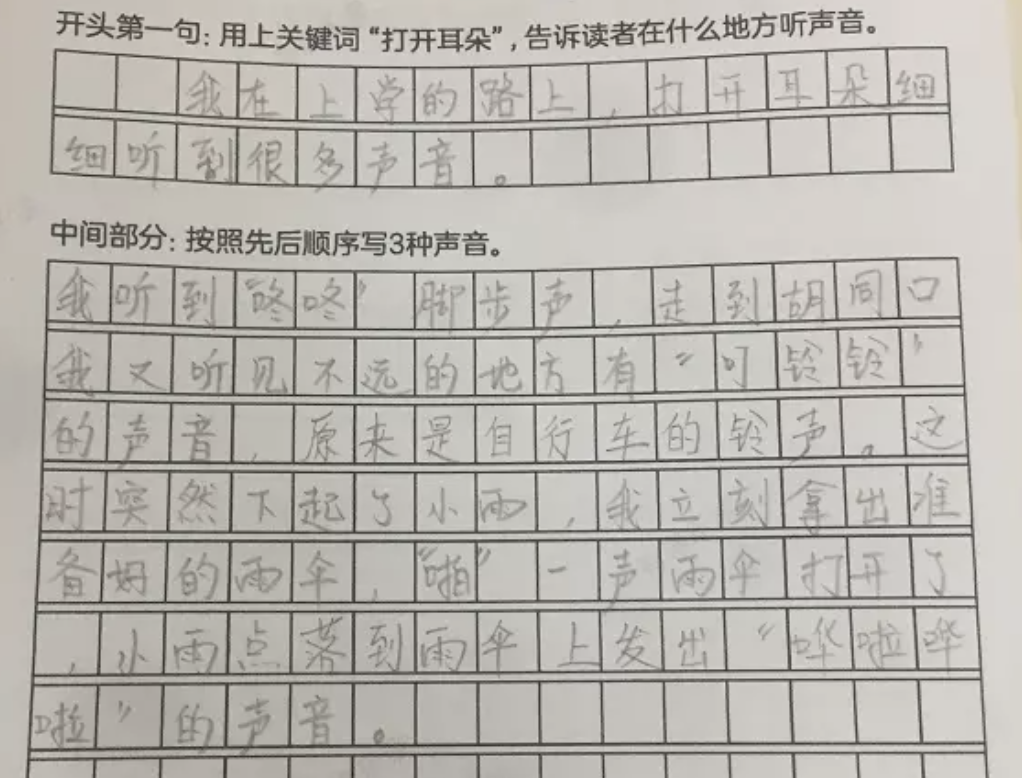 开头第一句：用上关键词“打开耳朵”，告诉读者在什么地方听声音。
我在上学的路上，打开耳朵细
细听到很多声音。
中间部分：按照先后顺序写3种声音。
我听到“咚咚”脚步声，走到胡同口
我又听见不远的地方有“叮铃铃”
的声音，原来是自行车的铃声。这
时突然下起了小雨，我立刻拿出准
备好的雨伞，“啪”一声雨伞打开了
，小雨点落到雨伞上发出“哗啦哗
啦”的声音。